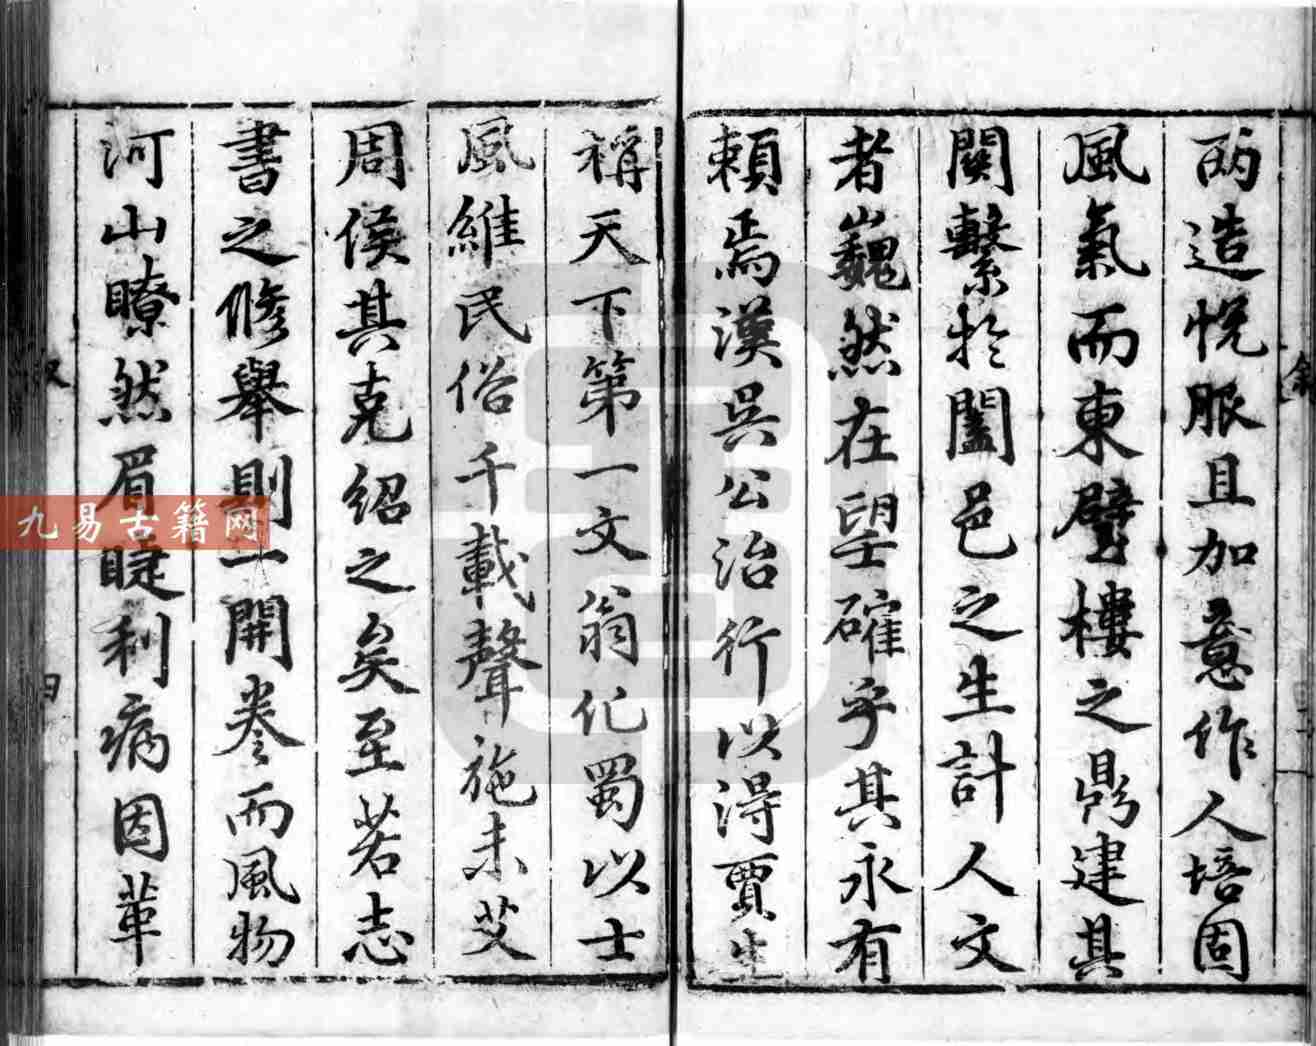 兩造悅服且加意作人培固
風氣而東壁樓之鼎建其
關繫於闔邑之生計人文
者巍然在望確乎其永有
賴焉漢吳公治行以得賈生
稱天下第一文翁化蜀以士
風維民俗千載聲施未艾
周侯其克紹之矣至若志
書之修舉則一開卷而風物
河山瞭然眉睫利病因革
九易古籍网